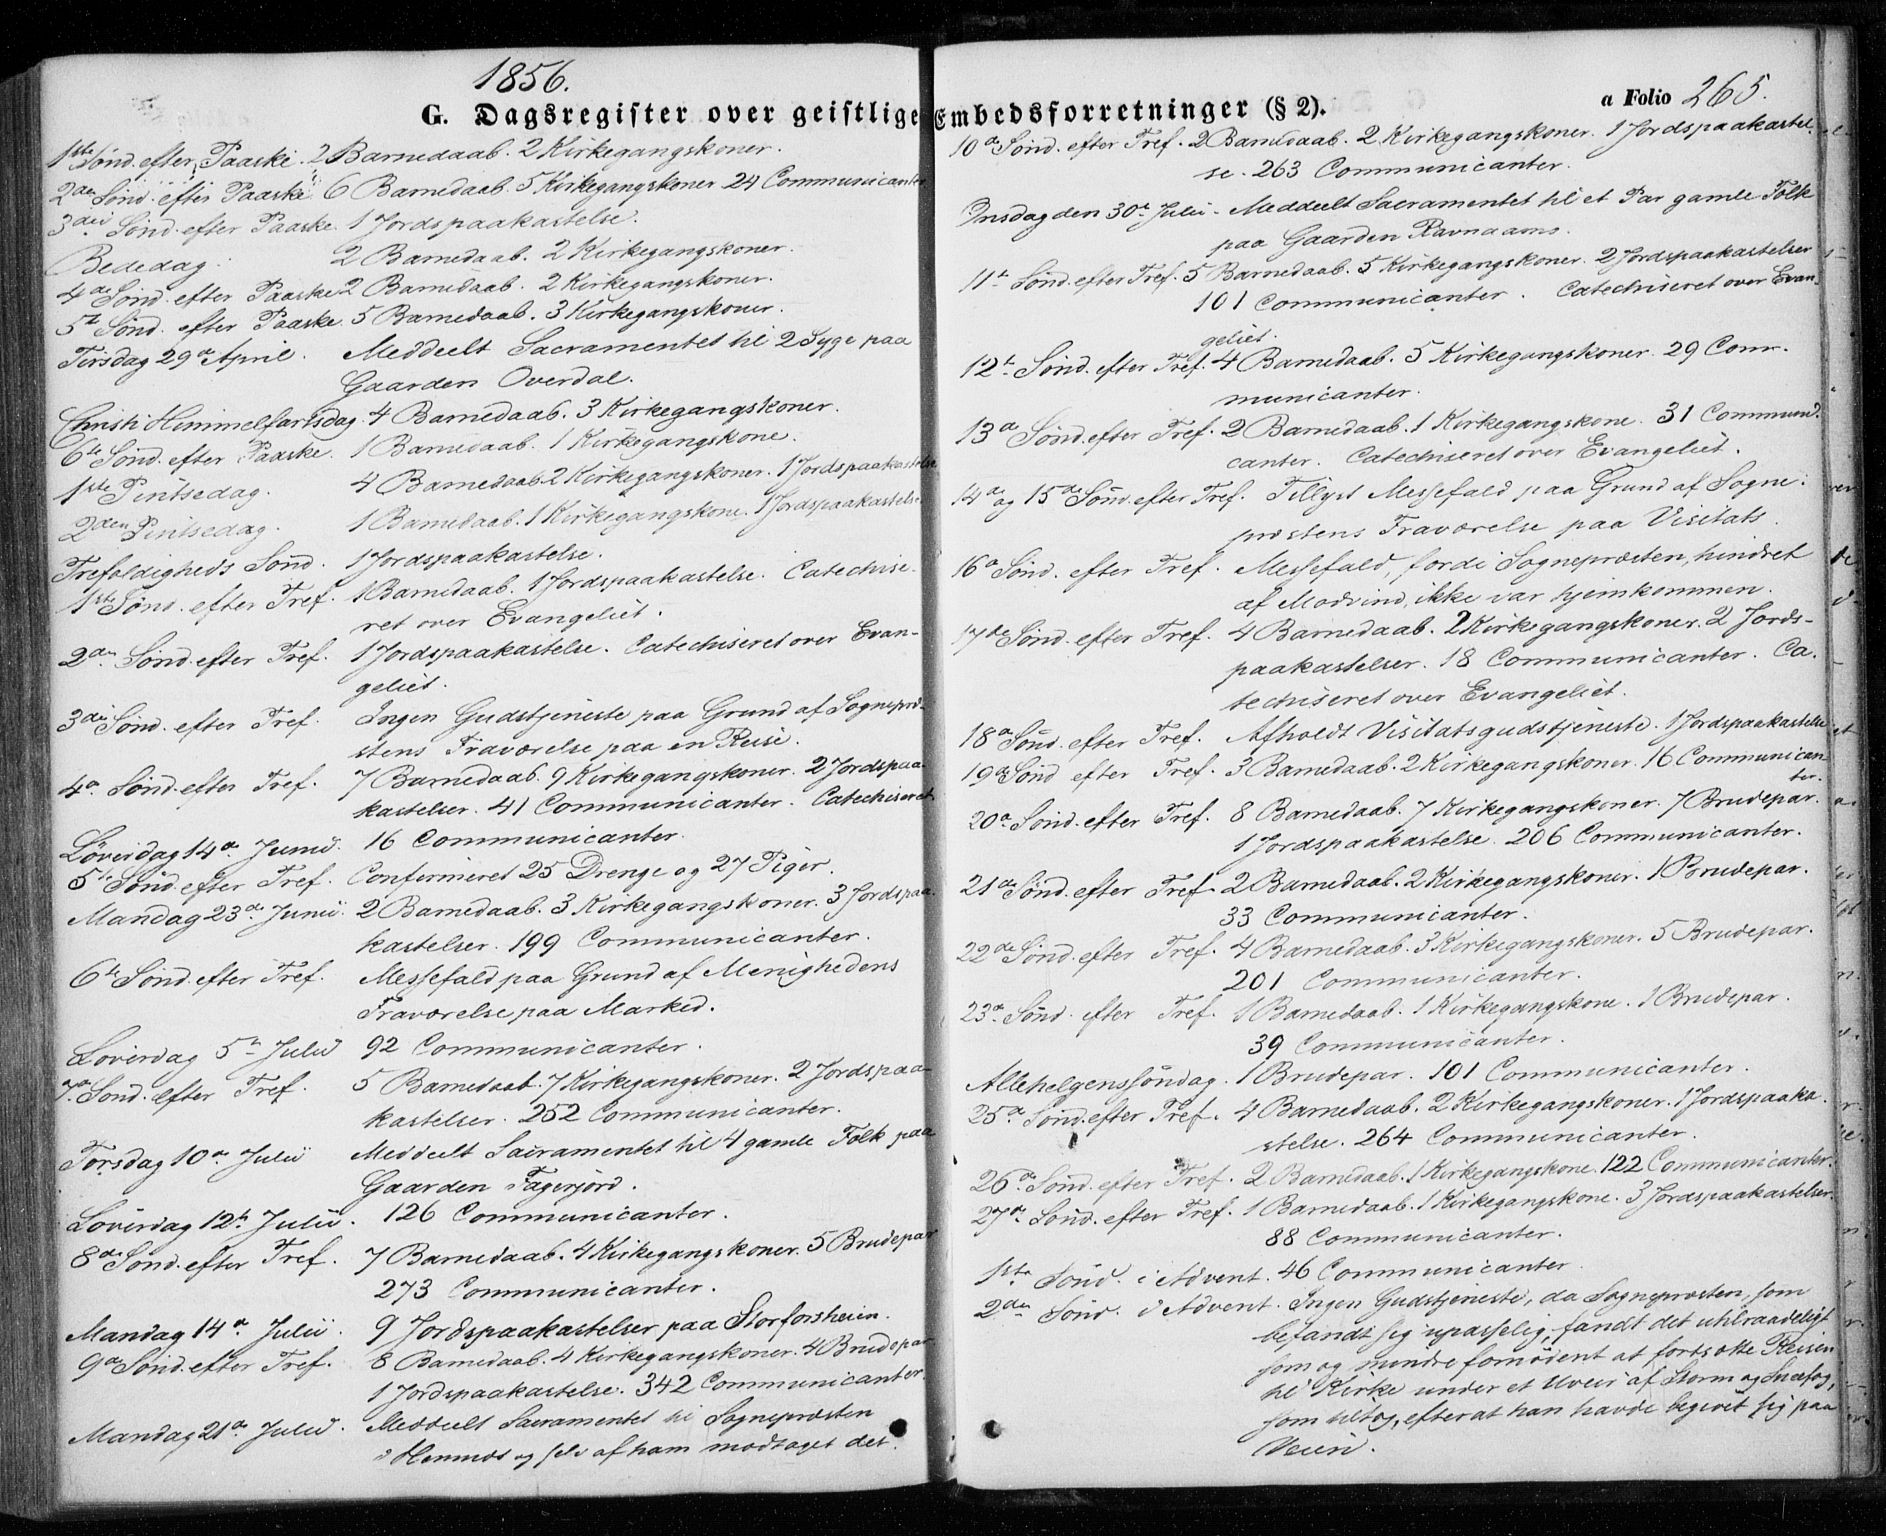 1856.
G. Dagsregister over geistlige Embedsforretninger (§ 2).
a Folio 265.
1ste Sønd. efter Paaske. 2 Barnedaab. 2 Kirkegangskoner.
2den Sønd. efter Paaske 6 Barnedaab. 5 Kirkegangskoner 24 Communicanter
3die Sønd. efter Paaske. 1 Jordspaakastelse.
Bededag. 2 Barnedaab. 2 Kirkegangskoner.
4de Sønd. efter Paaske 2 Barnedaab. 2 Kirkegangskoner.
5te Sønd. efter Paaske. 5 Barnedaab. 3 Kirkegangskoner.
Tirsdag 29de April. Meddeelt Sacramentet til 2 Syge paa
Gaarden Overdal.
Christi Himmelfartsdag. 4 Barnedaab. 3 Kirkegangskoner.
6te Sønd. efter Paaske. 1 Barnedaab. 1 Kirkegangskone.
1ste Pintsedag. 4 Barnedaab. 2 Kirkegangskoner. 1 Jordspaakastelse
2den Pintsedag. 1 Barnedaab. 1 Kirkegangskone. 1 Jordspaakastelse
Trefoldigheds Sønd. 1 Jordspaakastelse.
1ste Sønd. efter Tref. 1 Barnedaab. 1 Jordspaakastelse. Catechise-
ret over Evangeliet.
2den Sønd. efter Tref. 1 Jordspaakastelse. Catechiseret over Evan-
geliet.
3die Sønd. efter Tref. Ingen Gudstjeneste paa Grund af Sognepræ-
stens Fraværelse paa en Reise.
4de Sønd. efter Tref. 7 Barnedaab. 9 Kirkegangskoner. 2 Jordspaa-
kastelser. 41 Communicanter. Catechiseret
Løverdag 14de Junii. 16 Communicanter.
5te Sønd. efter Tref. Confirmeret 25 Drenge og 27 Piger.
Mandag 23de Junii. 2 Barnedaab. 3 Kirkegangskoner. 3 Jordspaa-
kastelser. 199 Communicanter.
6te Sønd. efter Tref. Messefald paa Grund af Menighedens
Fraværelse paa Marked.
Løverdag 5te Julii 92 Communicanter.
7de Sønd. efter Tref. 5 Barnedaab. 7 Kirkegangskoner. 2 Jordspaa-
kastelser. 252 Communicanter.
Torsdag 10de Julii Meddeelt Sacramentet til 4 gamle Folk paa
Gaarden Fagerjord.
Løverdag 12te Julii. 126 Communicanter.
8de Sønd. efter Tref. 7 Barnedaab. 4 Kirkegangskoner. 5 Brudepar
273 Communicanter.
Mandag 14de Julii. 9 Jordspaakastelser paa Storforsheien.
9de Sønd. efter Tref. 8 Barnedaab. 4 Kirkegangskoner. 4 Brudepar
1 Jordspaakastelse. 342 Communicanter.
Mandag 21de Julii. Meddeelt Sacramentet til Sognepræsten
i Hemnæs og selv af ham modtaget det.
10de Sønd. efter Tref. 2 Barnedaab. 2 Kirkegangskoner. 1 Jordspaakastel-
se. 263 Communicanter.
Onsdag den 30te Julii. Meddeelt Sacramentet til et Par gamle Folk
paa Gaarden Ravnaaens.
11te Sønd. efter Tref. 5 Barnedaab. 5 Kirkegangskoner. 2 Jordspaakastelser
101 Communicanter. Catechiseret over Evan-
geliet.
12te Sønd. efter Tref. 4 Barnedaab. 5 Kirkegangskoner. 29 Com-
municanter.
13de Sønd. efter Tref. 2 Barnedaab. 1 Kirkegangskone. 31 Communi-
canter. Catechiseret over Evangeliet.
14de og 15de Sønd. efter Tref. Tillyst Messefald paa Grund af Sogne-
præstens Fraværelse paa Visitats.
16de Sønd. efter Tref. Messefald, fordi Sognepræsten, hindret
af Modvind, ikke var hjemkommen.
17de Sønd. efter Tref. 4 Barnedaab. 2 Kirkegangskoner. 2 Jords-
paakastelser. 18 Communicanter. Ca-
techiseret over Evangeliet.
18de Sønd. efter Tref. Afholdt Visitatsgudstjeneste. 1 Jordspaakastelse
19de Sønd efter Tref. 3 Barnedaab. 2 Kirkegangskoner. 16 Communican-
ter.
20de Sønd. efter Tref. 8 Barnedaab. 7 Kirkegangskoner. 7 Brudepar.
1 Jordspaakastelse. 206 Communicanter.
21de Sønd. efter Tref. 2 Barnedaab. 2 Kirkegangskoner. 1 Brudepar.
33 Communicanter.
22de Sønd. efter Tref. 4 Barnedaab. 3 Kirkegangskoner. 5 Brudepar.
201 Communicanter.
23de Sønd. efter Tref. 1 Barnedaab. 1 Kirkegangskone. 1 Brudepar.
39 Communicanter.
Allehelgenssøndag. 1 Brudepar. 101 Communicanter.
25de Sønd. efter Tref. 4 Barnedaab. 2 Kirkegangskoner. 1 Jordspaaka-
stelse. 264 Communicanter.
26de Sønd. efter Tref. 2 Barnedaab. 1 Kirkegangskone. 122 Communicanter.
27de Sønd. efter Tref. 1 Barnedaab. 1 Kirkegangskone. 3 Jordspaakastelser.
88 Communicanter.
1ste Sønd. i Advent. 46 Communicanter
2den Sønd. i Advent. Ingen Gudstjeneste, da Sognepræsten, som
befandt sig upasselig, fandt det utilraadeligt
som og mindre fornødent at fortsætte Reisen
til Kirke under et Uveir af Storm og Sneefog,
som tiltog, efterat han havde begivet sig paa
Veien.